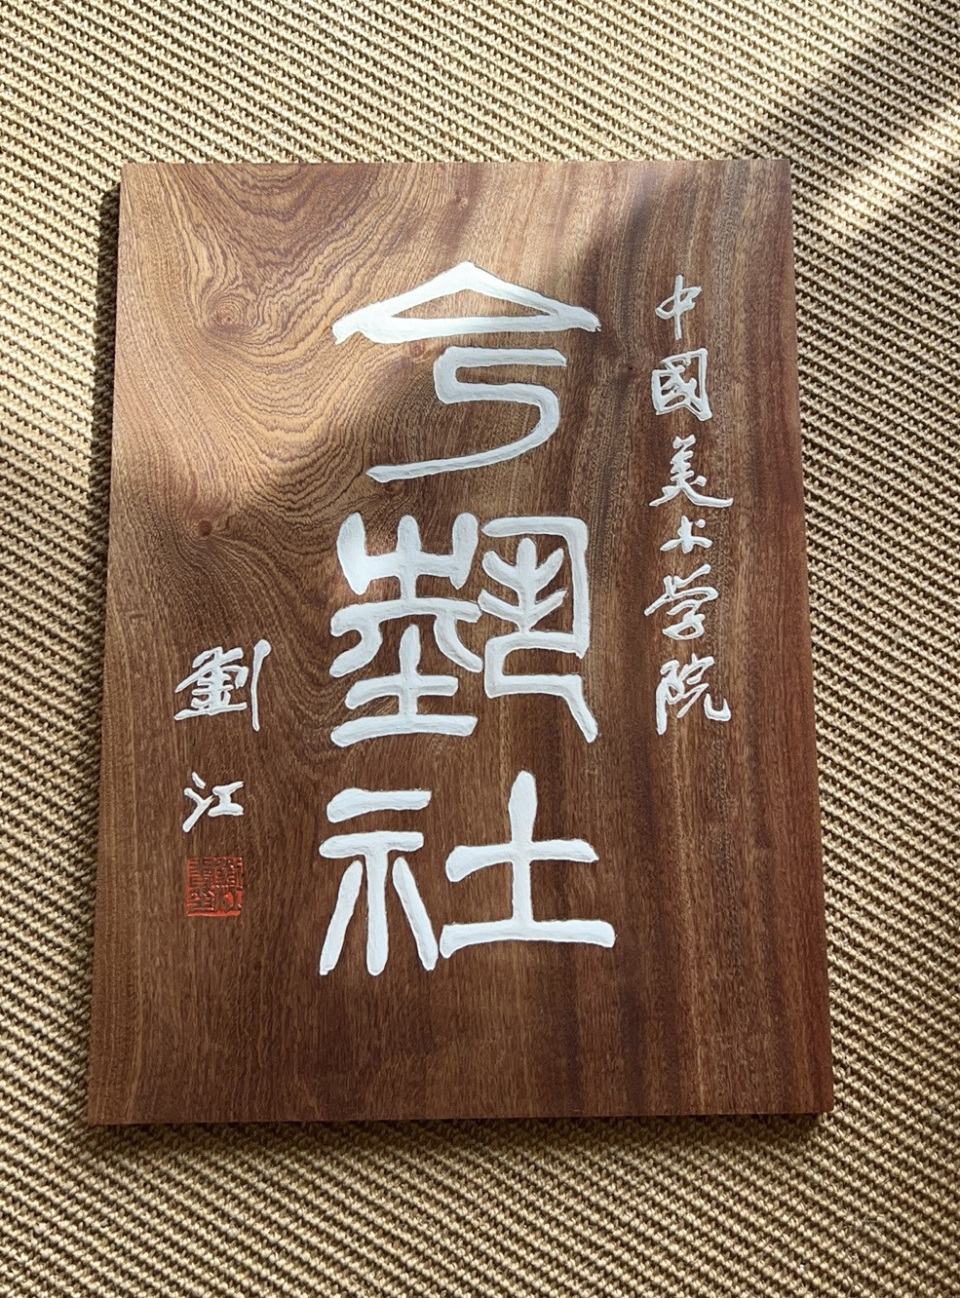 中國美术学院
今藝社
劉江